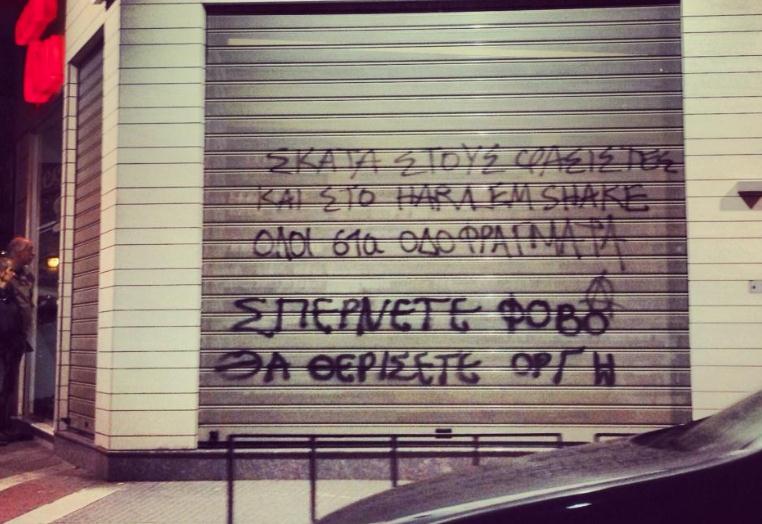 ΣΚΑΤΑ ΣΤΟΥΣ ΦΑΣΙΣΤΕΣ
ΚΑΙ ΣΤΟ HARLEM SHAKE
ΟΛΟΙ στα ΟΔΟΦΡΑΓΜΑΤΑ
ΣΠΕΡΝΕΤΕ ΦΟΒΟ
ΘΑ ΘΕΡΙΣΕΤΕ ΟΡΓΗ